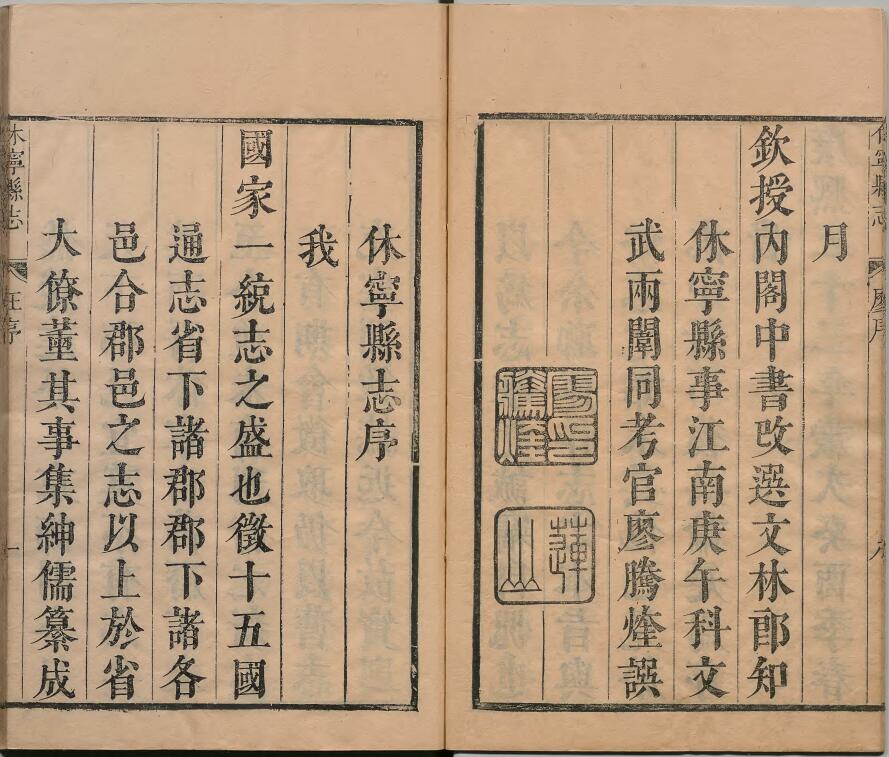 休寧縣志
廖序
月
欽授內閣中書改選文林郎知
休寧縣事江南庚午科文
武兩闈同考官廖騰煃譔
騰煃
蓮山
休寧縣志序
我
國家一統志之盛也徵十五國
通志省下諸郡郡下諸各
邑合郡邑之志以上於省
大僚董其事集紳儒纂成
休寧縣志
汪序
一